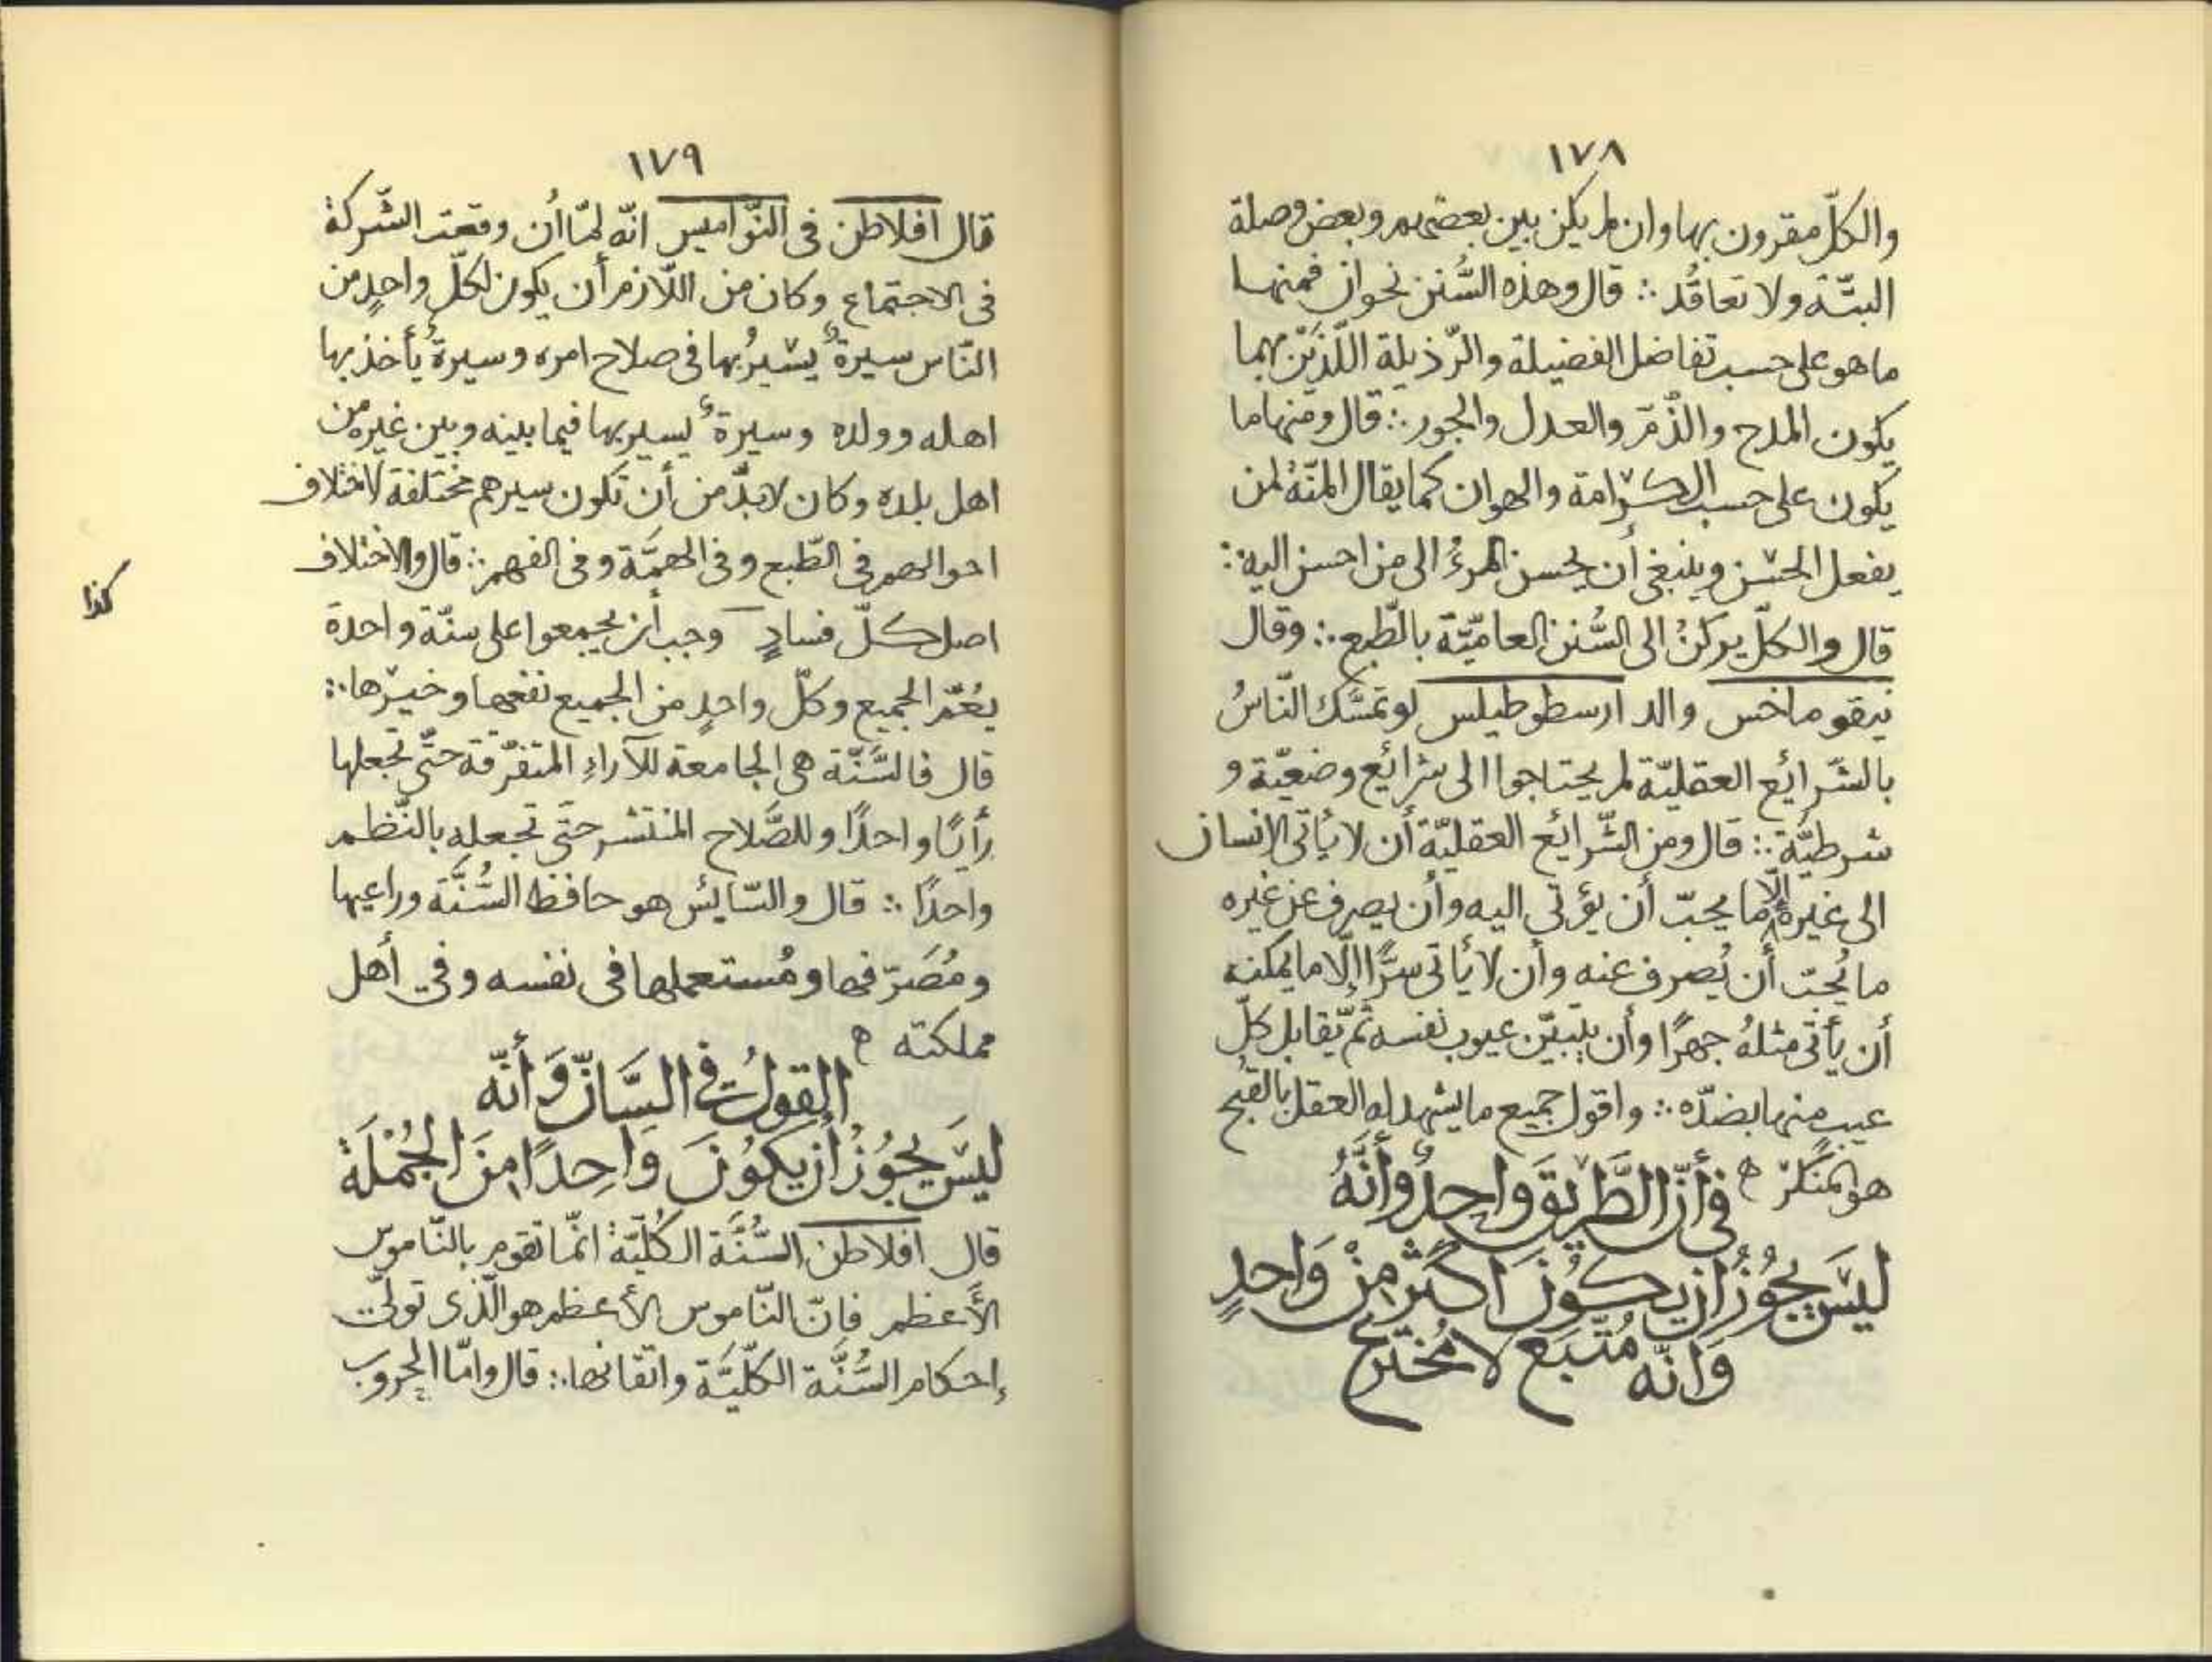 ١٧٨
والكلّ مقرون بها وان لم يكن بين بعضهم وبعض وصلة
البتّة ولا تعاقُد ∴ قال وهذه السُّنن نحوان فمنها
ما هو على حسب تفاضل الفضيلة والرّذيلة اللّذَيْن بهما
يكون المدح والذّمّ والعدل والجور ∴ قال ومنها ما
يكون على حسب الكرامة والهوان كما يقال المنّةُ لمن
يفعل الحسن وينبغى أن يحسن المرءُ الى من احسن اليه ∴
قال والكلّ يركنُ الى السُّنن العاميّة بالطّبع ∴ وقال
نيقوماخس والد ارسطوطيلس لو تمسَّك النّاسُ
بالشّرائع العقليّة لم يحتاجوا الى شرائع وضعيّة و
شرطيَّة ∴ قال ومن الشّرائع العقليّة أن لا يأتى الإنسان
الى غيره إلّا ما يحبّ أن يؤتى اليه وأن يصرف عن غيره
ما يُحبّ أن يُصرف عنه وأن لا يأتى سرًّا إلّا ما يمكنه
أن يأتى مثلهُ جهرًا وأن يتبيّن عيوب نفسه ثمّ يقابل كلّ
عيبٍ منها بضدّه ∴ واقول جميع ما يشهد له العقل بالقبح
هو المنكر ه فى أنّ الطَّرِيقَ وَاحِدٌ وأنَّهُ
ليسَ يجُوزُ أن يكُونَ اكثر مِنْ وَاحدٍ
وَانّه مُتّبَع لا مُخترع
١٧٩
قال افلاطن فى النّواميس انّه لمّا أن وقعت الشّركة
فى الاجتماع وكان من اللّازم أن يكون لكلّ واحدٍ من
النّاس سيرةٌ يسيرُ بها فى صلاح امره وسيرةٌ يأخذ بها
اهله وولده وسيرةٌ يسير بها فيما بينه وبين غيره من
اهل بلده وكان لا بدّ من أن تكون سيرهم مختلفة لاختلاف
احوالهم فى الطّبع وفى الهمَّة وفى الفهم ∴ قال والاختلاف
كذا
اصل كلّ فسادٍ وجب أن يجمعوا على سنّة واحدة
يعُمّ الجميع وكلّ واحدٍ من الجميع نفعها وخيرها ∴
قال فالسَّنّة هى الجامعة للآراءِ المتفرّقة حتّى تجعلها
رأيًا واحدًا وللصَّلاح المنتشر حتّى تجعله بالنّظم
واحدًا ∴ قال والسّايس هو حافظ السُّنَّة وراعيها
ومُصَرّفها ومُستعملها فى نفسه وفي أهل
مملكته ه
القولُ فى السَّانّ وَأنّه
ليسَ يجُوُزُ أن يكوُنَ وَاحِدًا مِنَ الجُمْلَة
قال افلاطن السُّنَّة الكُلّيّة انّما تقوم بالنّاموس
الأعظم فانّ النّاموس الأعظم هو الّذى تولّى
إحكام السُّنَّة الكلّيَّة واتقانها ∴ قال وامّا الحروب